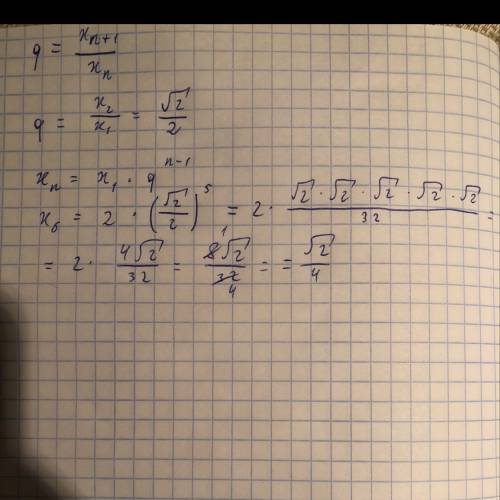 q = xn+1 / xn
q = x2 / x1 = √2 / 2
xn = x1 · q^n-1
x6 = 2 · (√2 / 2)^5 = 2 · √2 · √2 · √2 · √2 · √2 / 32 =
= 2 · 4√2 / 32 = 8√2 / 32 1 4 = = √2 / 4